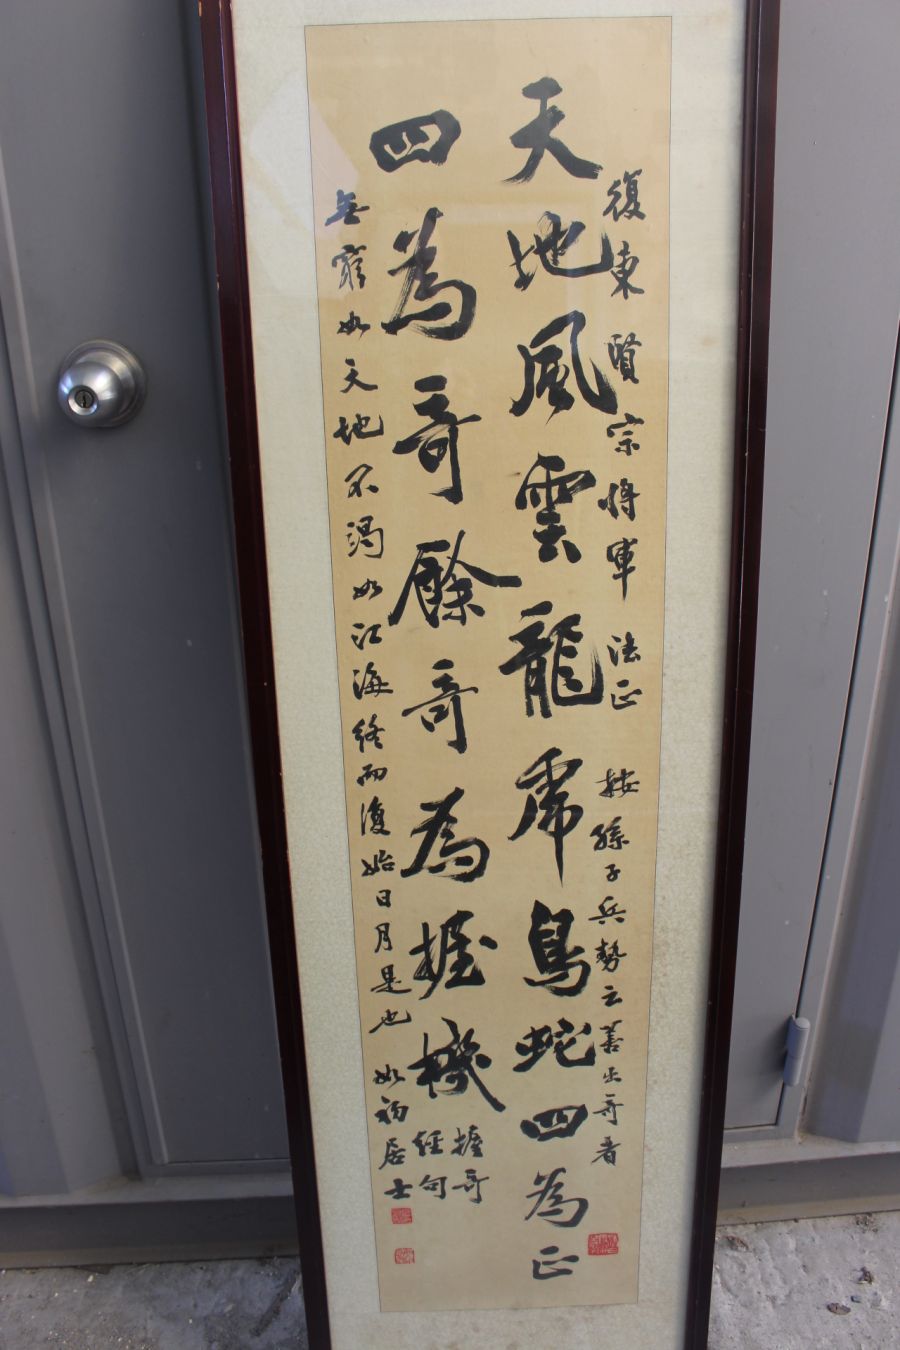 復東賢宗將軍 法正 按孫子兵勢云善出奇者
天地風雲龍虎鳥蛇四為正
四為奇餘奇為握機
握奇
經句
無窮如天地不渴如江海終而復始日月是也 如初居士